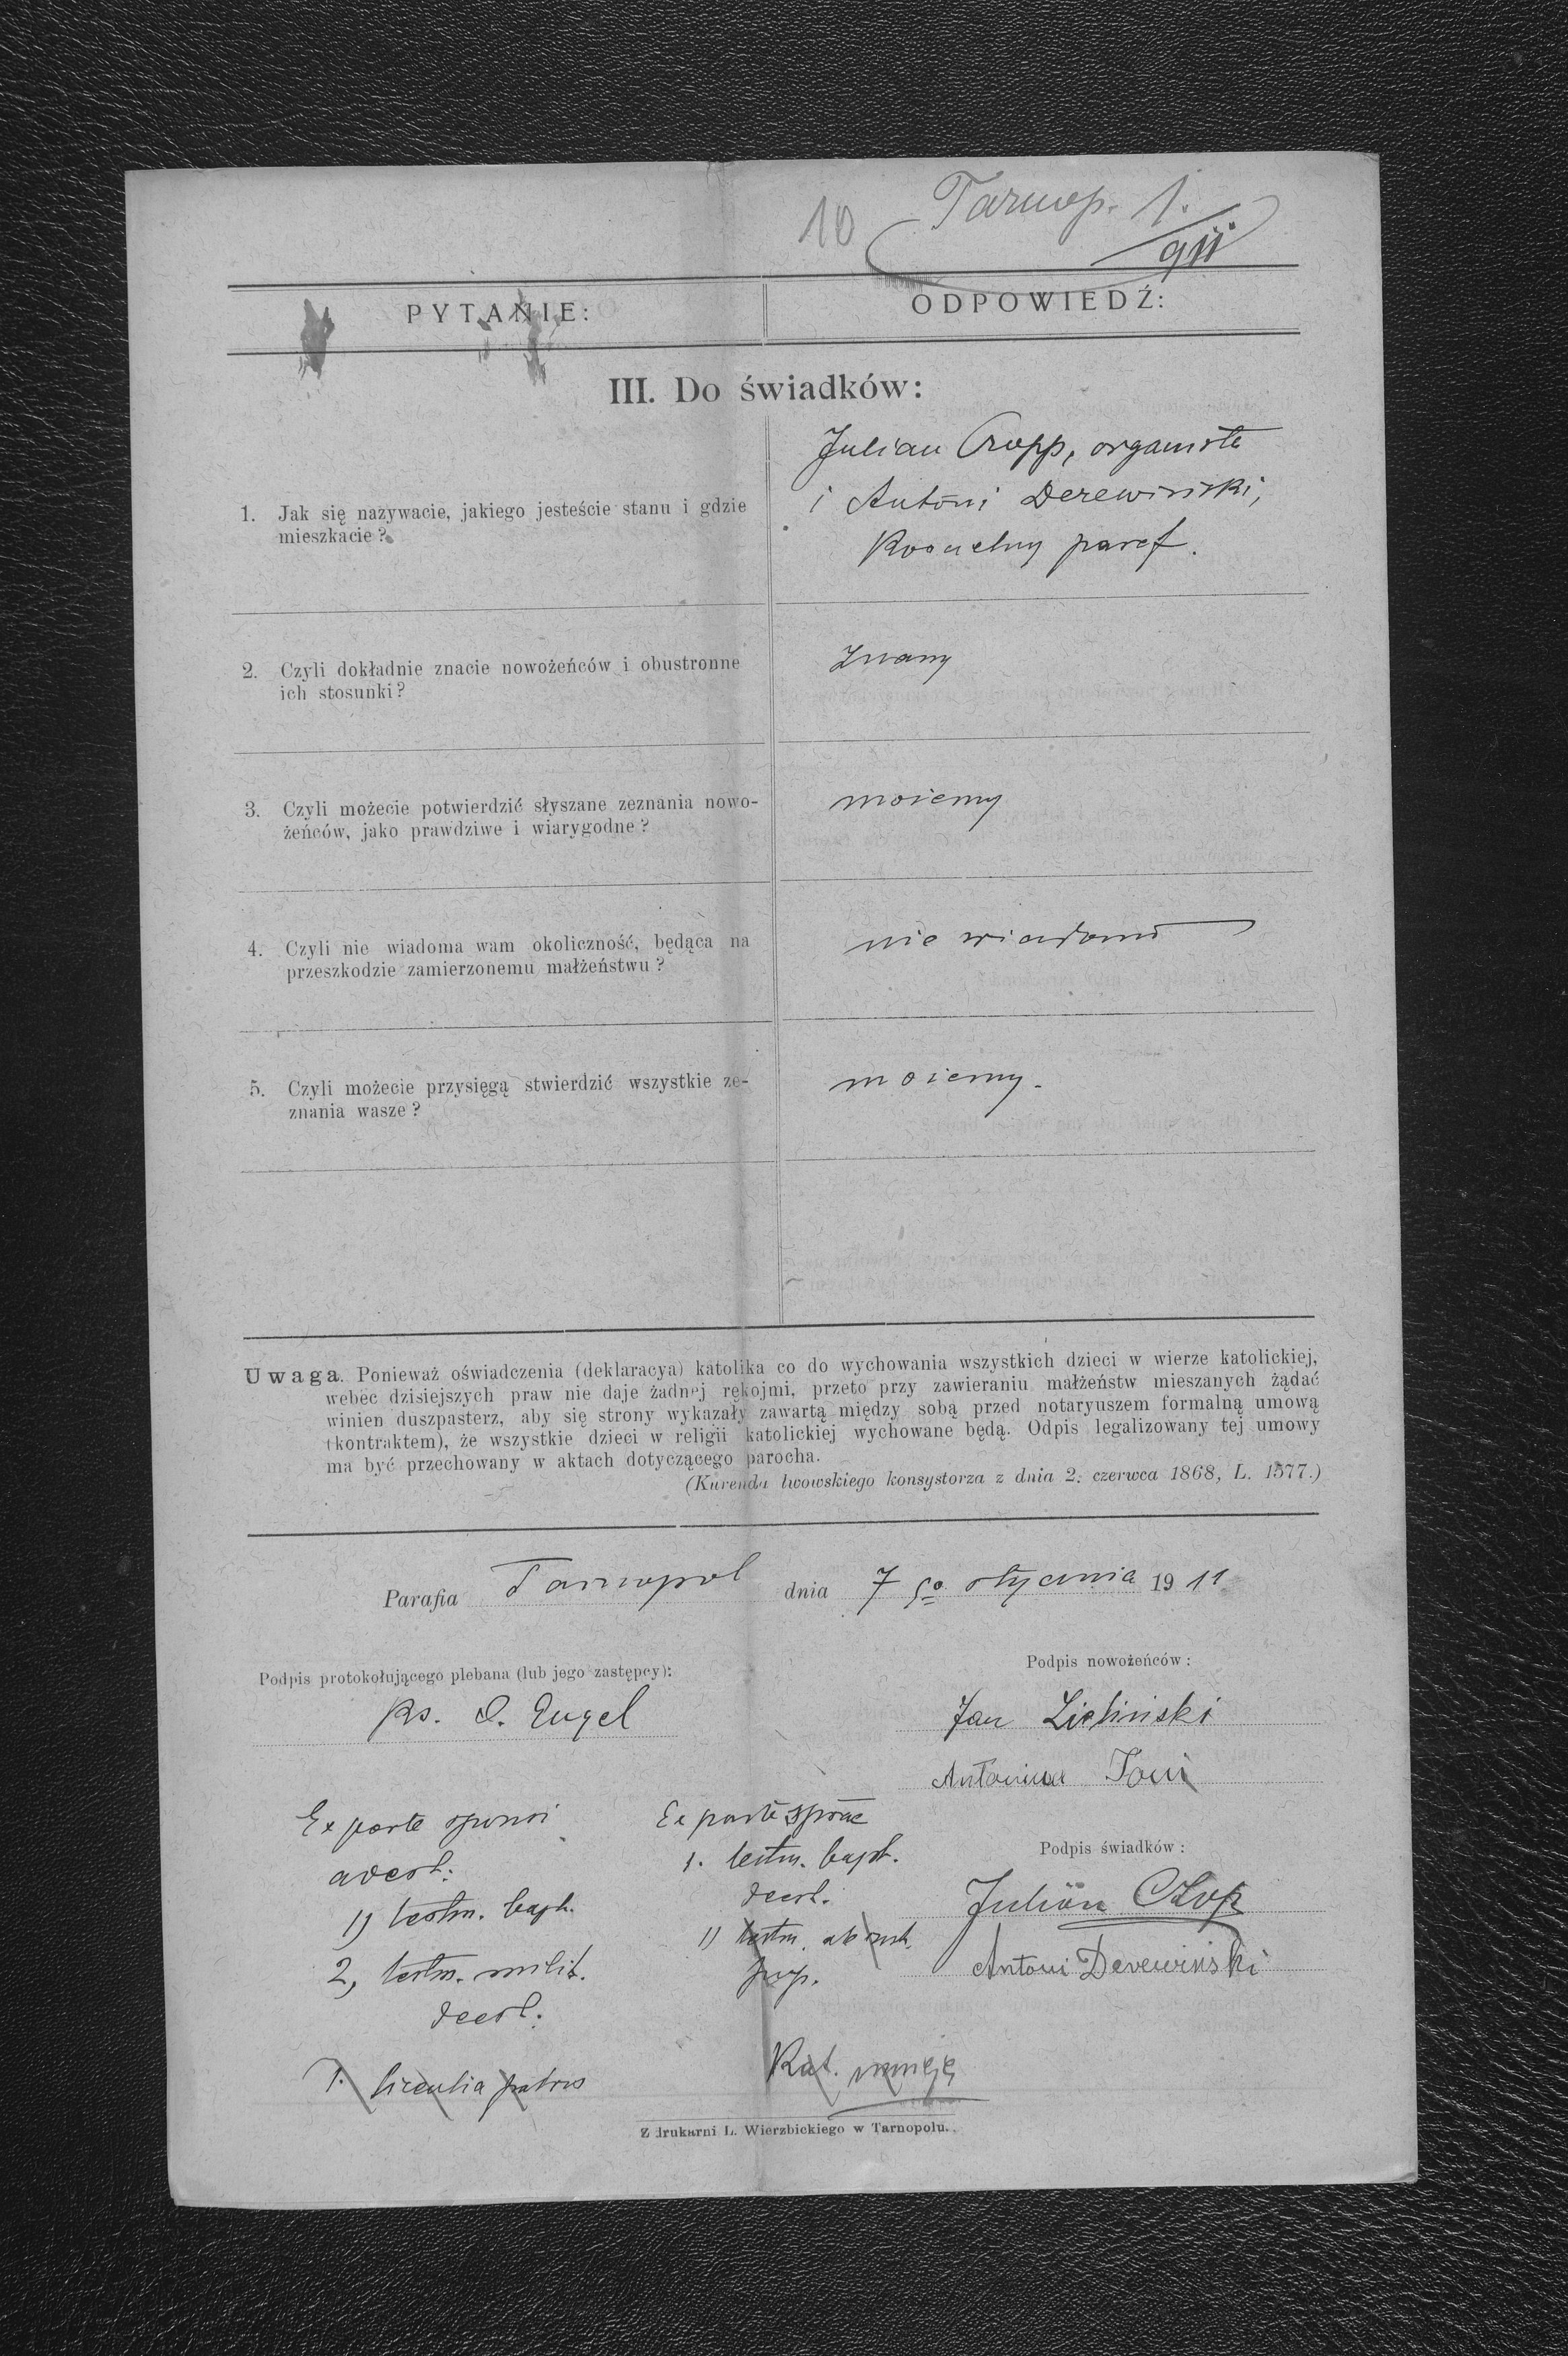 10
Tarnop. 1.
911
PYTANIE:
ODPOWIEDŹ:
III. Do świadków:
1. Jak się nazywacie, jakiego jesteście stanu i gdzie
mieszkacie?
Julian Cropp, organista
i Antoni Derewiński,
kościelny paraf.
2. Czyli dokładnie znacie nowożeńców i obustronne
ich stosunki?
znamy
3. Czyli możecie potwierdzić słyszane zeznania nowo-
żeńców, jako prawdziwe i wiarygodne?
możemy
4. Czyli nie wiadoma wam okoliczność, będąca na
przeszkodzie zamierzonemu małżeństwu?
nie wiadomo
5. Czyli możecie przysięgą stwierdzić wszystkie ze-
znania wasze?
możemy.
Uwaga. Ponieważ oświadczenia (deklaracya) katolika co do wychowania wszystkich dzieci w wierze katolickiej,
wobec dzisiejszych praw nie daje żadnej rękojmi, przeto przy zawieraniu małżeństw mieszanych żądać
winien duszpasterz, aby się strony wykazały zawartą między sobą przed notaryuszem formalną umową
(kontraktem), że wszystkie dzieci w religii katolickiej wychowane będą. Odpis legalizowany tej umowy
ma być przechowany w aktach dotyczącego parocha.
(Kurenda lwowskiego konsystorza z dnia 2. czerwca 1868, L. 1577.)
Parafia Tarnopol dnia 7 go stycznia 1911
Podpis protokołującego plebana (lub jego zastępcy):
Ks. O. Engel
Podpis nowożeńców:
Jan Zieliński
Antonina
Ex parte sponsi
adest:
1) testm. bapt.
2, testm. milit.
deest:
1. licentia patris
Ex parte sponsae
1. testm. bapt.
deest.
1) testm.
Podpis świadków:
Julian
Antoni Derewiński
Z drukarni L. Wierzbickiego w Tarnopolu.